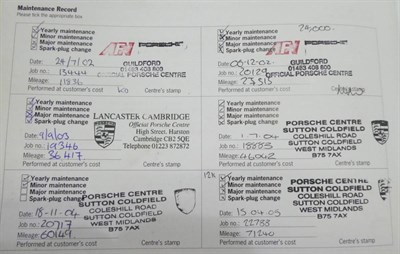 Maintenance Record
Please tick the appropriate box
Yearly maintenance
Minor maintenance
Major maintenance
Spark-plug change
AFN PORSCHE
GUILDFORD
01483 408 800
OFFICIAL PORSCHE CENTRE
Date: 24/7/02
Job no.: 15444
Mileage:
Performed at customer's cost
20,000
Yearly maintenance
Minor maintenance
Major maintenance
Spark-plug change
AFN PORSCHE
GUILDFORD
01483 408 800
OFFICIAL PORSCHE CENTRE
Date: 06-12-02
Job no.: 20129
Mileage: 23515
Performed at customer's cost
Yearly maintenance
Minor maintenance
Major maintenance
Spark-plug change
LANCASTER CAMBRIDGE
Official Porsche Centre
High Street, Harston
Cambridge CB2 5QE
Telephone 01223 872872
Date: 9/9/03
Job no.: 19346
Mileage: 36417
Performed at customer's cost
Centre's stamp
Yearly maintenance
Minor maintenance
Major maintenance
Spark-plug change
PORSCHE CENTRE
SUTTON COLDFIELD
COLESHILL ROAD
SUTTON COLDFIELD
WEST MIDLANDS
B75 7AX
Date: 1-7-04
Job no.: 18883
Mileage: 46042
Performed at customer's cost
Centre's stamp
Yearly maintenance
Minor maintenance
Major maintenance
Spark-plug change
PORSCHE CENTRE
SUTTON COLDFIELD
COLESHILL ROAD
SUTTON COLDFIELD
WEST MIDLANDS
B75 7AX
Date: 18-11-04
Job no.: 20717
Mileage: 60449
Performed at customer's cost
Centre's stamp
12k
Yearly maintenance
Minor maintenance
Major maintenance
Spark-plug change
PORSCHE CENTRE
SUTTON COLDFIELD
COLESHILL ROAD
SUTTON COLDFIELD
WEST MIDLANDS
B75 7AX
Date: 15-04-05
Job no.: 22788
Mileage: 71240
Performed at customer's cost
Centre's stamp